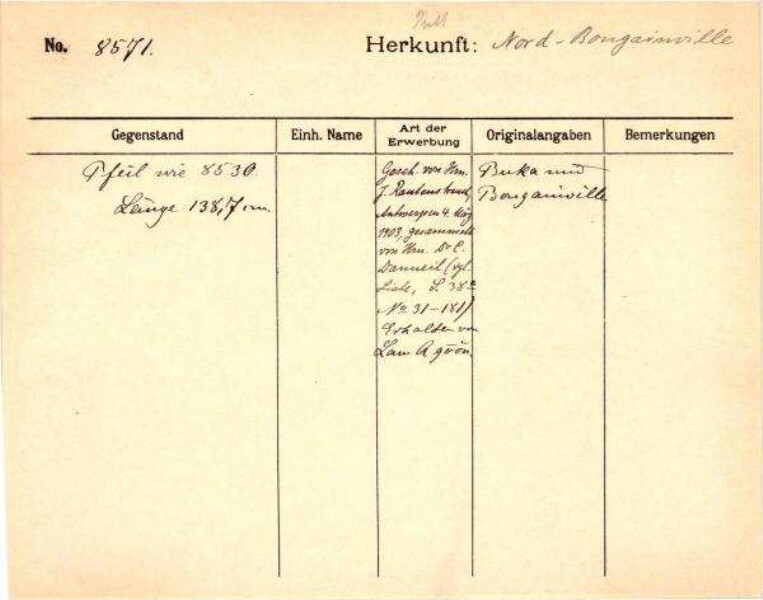 No. 8571.
Herkunft: Nord-Bougainville
Gegenstand
Einh. Name
Art der
Erwerbung
Originalangaben
Bemerkungen
Pfeil wie 8530.
Länge 138,7 cm.
Gesch. von Hrn.
J. Rautenstrauch,
Antwerpen 4. März
1903, gesammelt
von Hrn. Dr C.
Danneil (vgl.
Liste, S. 38
No 31-181)
Erhalten von
Buka und
Bougainville